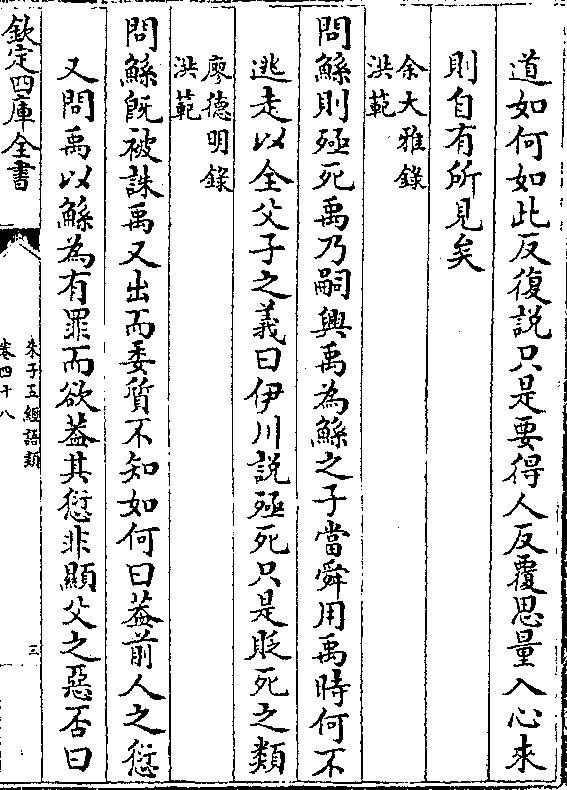 道如何如此反復說只是要得人反覆思量入心來
則自有所見矣
余大雅錄
洪範
問鯀則殛死禹乃嗣興禹為鯀之子當舜用禹時何不
逃走以全父子之義曰伊川說殛死只是貶死之類
廖德明錄
洪範
問鯀既被誅禹又出而委質不知如何曰葢前人之愆
又問禹以鯀為有罪而欲葢其愆非顯父之惡否曰
欽定四庫全書
朱子五經語類
卷四十八
三